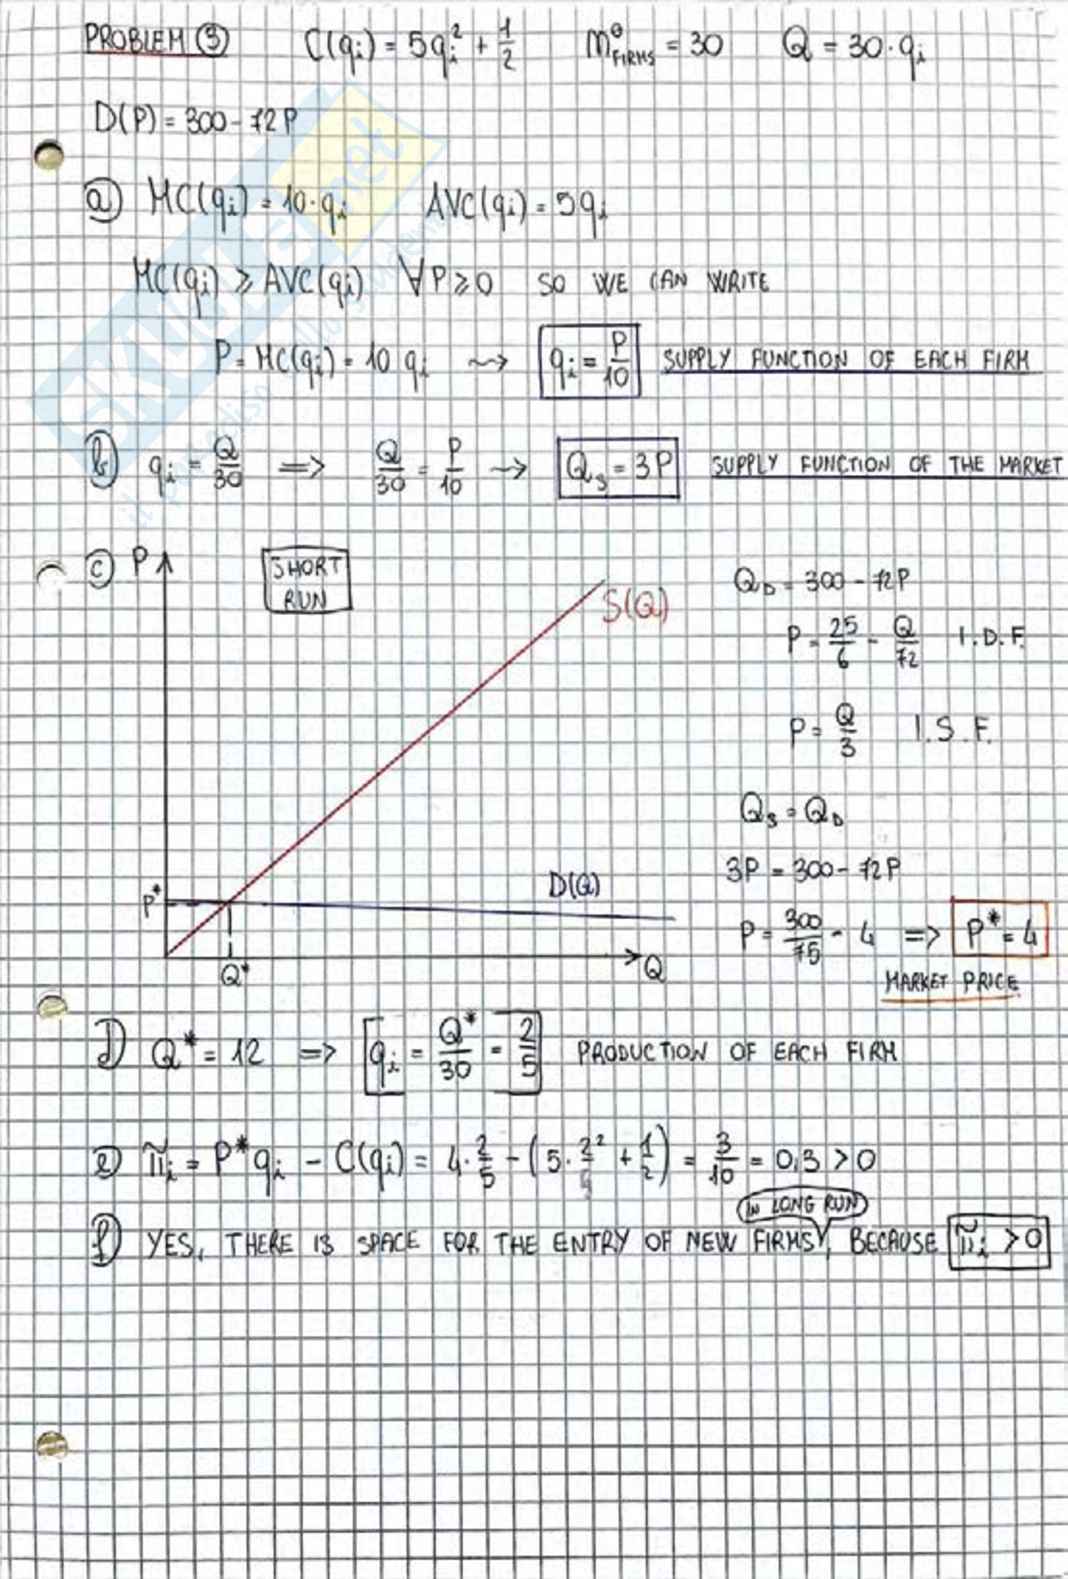 PROBLEM ③ C(qᵢ) = 5qᵢ² + 1/2 m°FIRMS = 30 Q = 30·qᵢ
D(P) = 300 - 72P
a) MC(qᵢ) = 10·qᵢ AVC(qᵢ) = 5qᵢ
MC(qᵢ) ⩾ AVC(qᵢ) ∀P⩾0 SO WE CAN WRITE
P = MC(qᵢ) = 10 qᵢ ⇝ qᵢ = P/10 SUPPLY FUNCTION OF EACH FIRM
b) qᵢ = Q/30 => Q/30 = P/10 ⇝ Qs = 3P SUPPLY FUNCTION OF THE MARKET
c) P
SHORT
RUN
S(Q)
D(Q)
P*
Q*
Q
QD = 300 - 72P
P = 25/6 - Q/72 I.D.F.
P = Q/3 I.S.F.
Qs = QD
3P = 300 - 72P
P = 300/75 = 4 => P* = 4
MARKET PRICE
d) Q* = 12 => qᵢ = Q*/30 = 2/5 PRODUCTION OF EACH FIRM
e) π̃ᵢ = P*qᵢ - C(qᵢ) = 4·2/5 - (5·2²/5 + 1/2) = 3/10 = 0,3 > 0
IN LONG RUN
f) YES, THERE IS SPACE FOR THE ENTRY OF NEW FIRMS, BECAUSE π̃ᵢ > 0
SKUOLA.net